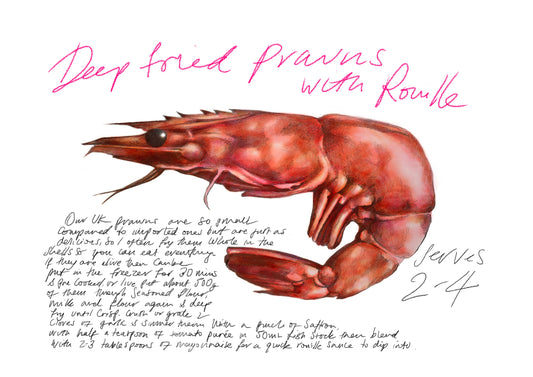 Deep fried prawns
with Rouille
Our UK prawns are so small
compared to imported ones but are just as
delicious, so I often fry them whole in the
shells so you can eat everything
if they are live then can be
put in the freezer for 20 mins
pre cooked or live put about 500g
of them through seasoned flour,
milk and flour again & deep
fry until crisp. Crush or grate 2
cloves of garlic & simmer them with a pinch of saffron
with half a teaspoon of tomato purée in 50ml fish stock then blend
with 2-3 tablespoons of mayonnaise for a quick rouille sauce to dip into
serves
2-4